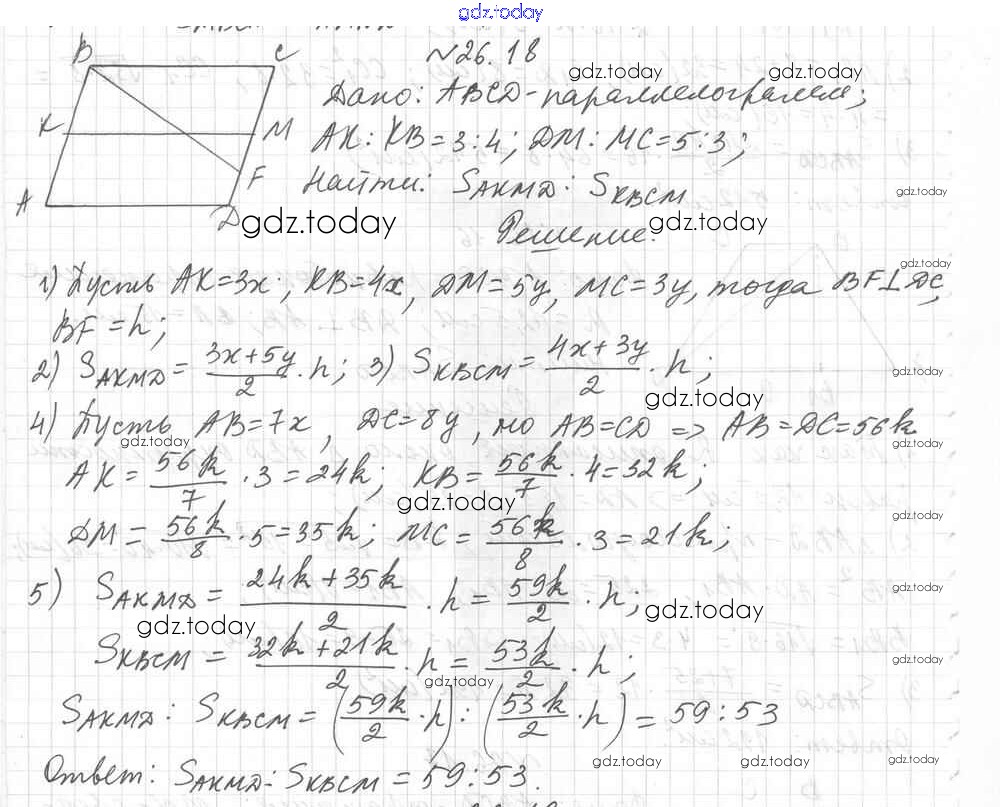 gdz.today
№26.18
B C
K M
F
A D
gdz.today gdz.today
Дано: ABCD-параллелограмм;
AK:KB=3:4; DM:MC=5:3;
Найти: S_AKMD : S_KBCM gdz.today
gdz.today Решение: gdz.today
gdz.today
1) Пусть AK=3x, KB=4x, DM=5y, MC=3y, тогда BF⊥DC,
BF=h;
2) S_AKMD = (3x+5y)/2 · h; 3) S_KBCM = (4x+3y)/2 · h;
gdz.today gdz.today
4) Пусть AB=7x, DC=8y, но AB=CD => AB=DC=56k
gdz.today gdz.today
AK = 56k/7 · 3 = 24k; KB = 56k/7 · 4 = 32k;
gdz.today gdz.today
DM = 56k/8 · 5 = 35k; MC = 56k/8 · 3 = 21k;
5) S_AKMD = (24k+35k)/2 · h = 59k/2 · h;
gdz.today gdz.today gdz.today
S_KBCM = (32k+21k)/2 · h = 53k/2 · h;
gdz.today gdz.today
S_AKMD : S_KBCM = (59k/2 · h) : (53k/2 · h) = 59:53
gdz.today gdz.today gdz.today
Ответ: S_AKMD : S_KBCM = 59:53.